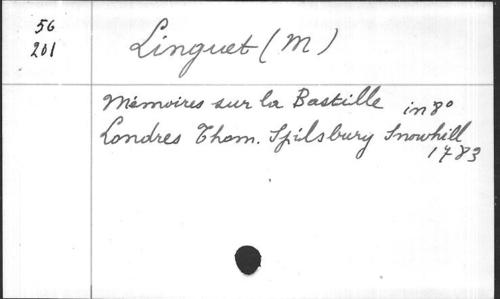 56
201
Linguet (M)
Mémoires sur la Bastille in 8°
Londres Thom. Spilsbury Snowhill
1783